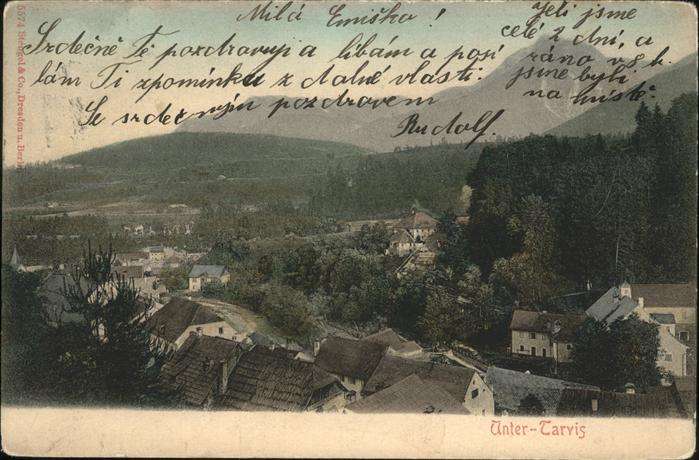 Milá Emiško!
Srdečně Tě pozdravuji a líbám a posí
lám Ti zpomínku z dalné vlasti.
Se srdečným pozdravem
Rudolf.
Jeli jsme
celé 2 dni, a
ráno v 8 h.
jsme byli
na místě.
5574 Stengel & Co., Dresden u. Berlin
Unter-Tarvis